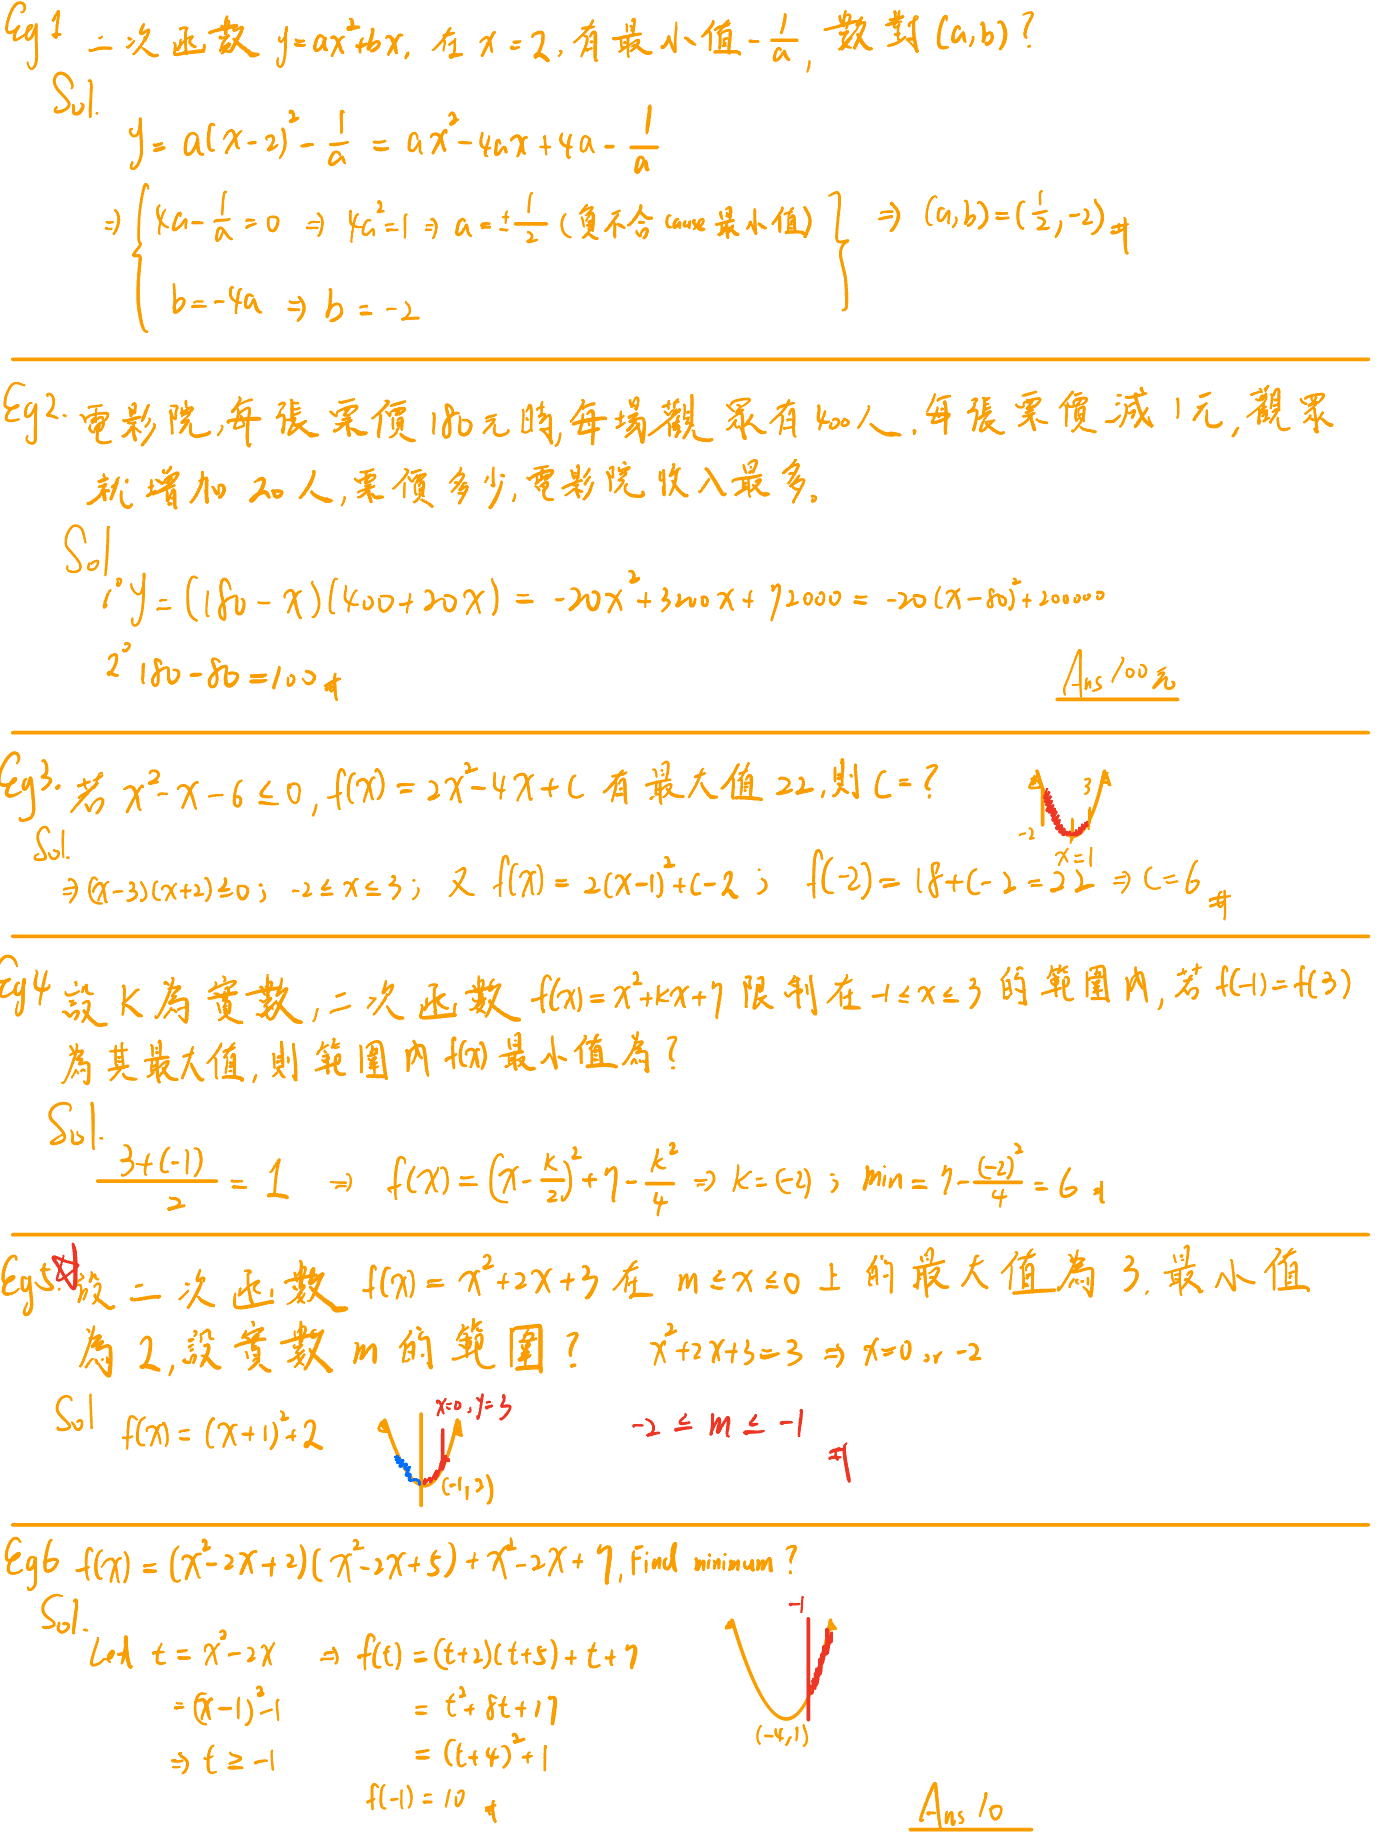 Eg1 二次函數 y=ax²+bx, 在 x=2, 有最小值-1/a, 數對(a,b)?
Sol.
y=a(x-2)²-1/a=ax²-4ax+4a-1/a
⇒{4a-1/a=0 ⇒ 4a²=1 ⇒ a=±1/2 (負不合 cause 最小值)} ⇒ (a,b)=(1/2,-2)#
b=-4a ⇒ b=-2
Eg2. 電影院,每張票價180元時,每場觀眾有400人.每張票價減1元,觀眾
就增加20人,票價多少,電影院收入最多。
Sol
1° y=(180-x)(400+20x)=-20x²+3200x+72000=-20(x-80)²+200000
2° 180-80=100#
Ans 100元
Eg3. 若x²-x-6≤0, f(x)=2x²-4x+c 有最大值22,則c=?
-2 3 x=1
Sol.
⇒(x-3)(x+2)≤0; -2≤x≤3; 又 f(x)=2(x-1)²+c-2; f(-2)=18+c-2=22 ⇒ c=6#
Eg4 設K為實數,二次函數 f(x)=x²+kx+7 限制在-1≤x≤3的範圍內,若f(-1)=f(3)
為其最大值,則範圍內f(x)最小值為?
Sol.
(3+(-1))/2=1 ⇒ f(x)=(x-k/2)²+7-k²/4 ⇒ k=(-2); min=7-(-2)²/4=6#
Eg5.☆設二次函數 f(x)=x²+2x+3在 m≤x≤0上的最大值為3.最小值
為2,設實數m的範圍? x²+2x+3=3 ⇒ x=0 or -2
Sol f(x)=(x+1)²+2 x=0,y=3 (-1,2) -2≤m≤-1#
Eg6 f(x)=(x²-2x+2)(x²-2x+5)+x²-2x+7, Find minimum?
Sol.
Let t=x²-2x ⇒ f(t)=(t+2)(t+5)+t+7
=(x-1)²-1 =t²+8t+17
⇒t≥-1 =(t+4)²+1
f(-1)=10#
-1
(-4,1)
Ans 10